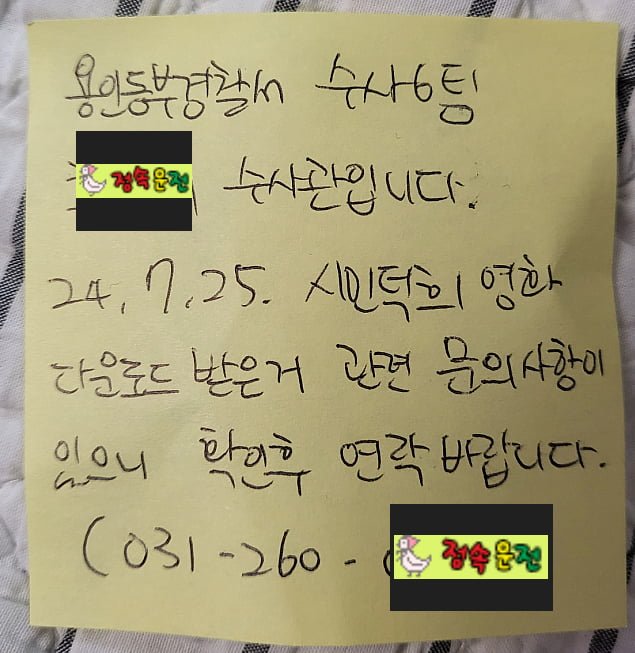 용인동부경찰서 수사6팀
정속운전 수사관입니다.
24.7.25. 시민덕희 영화
다운로드 받은거 관련 문의사항이
있으니 확인후 연락바랍니다.
(031-260- 정속운전